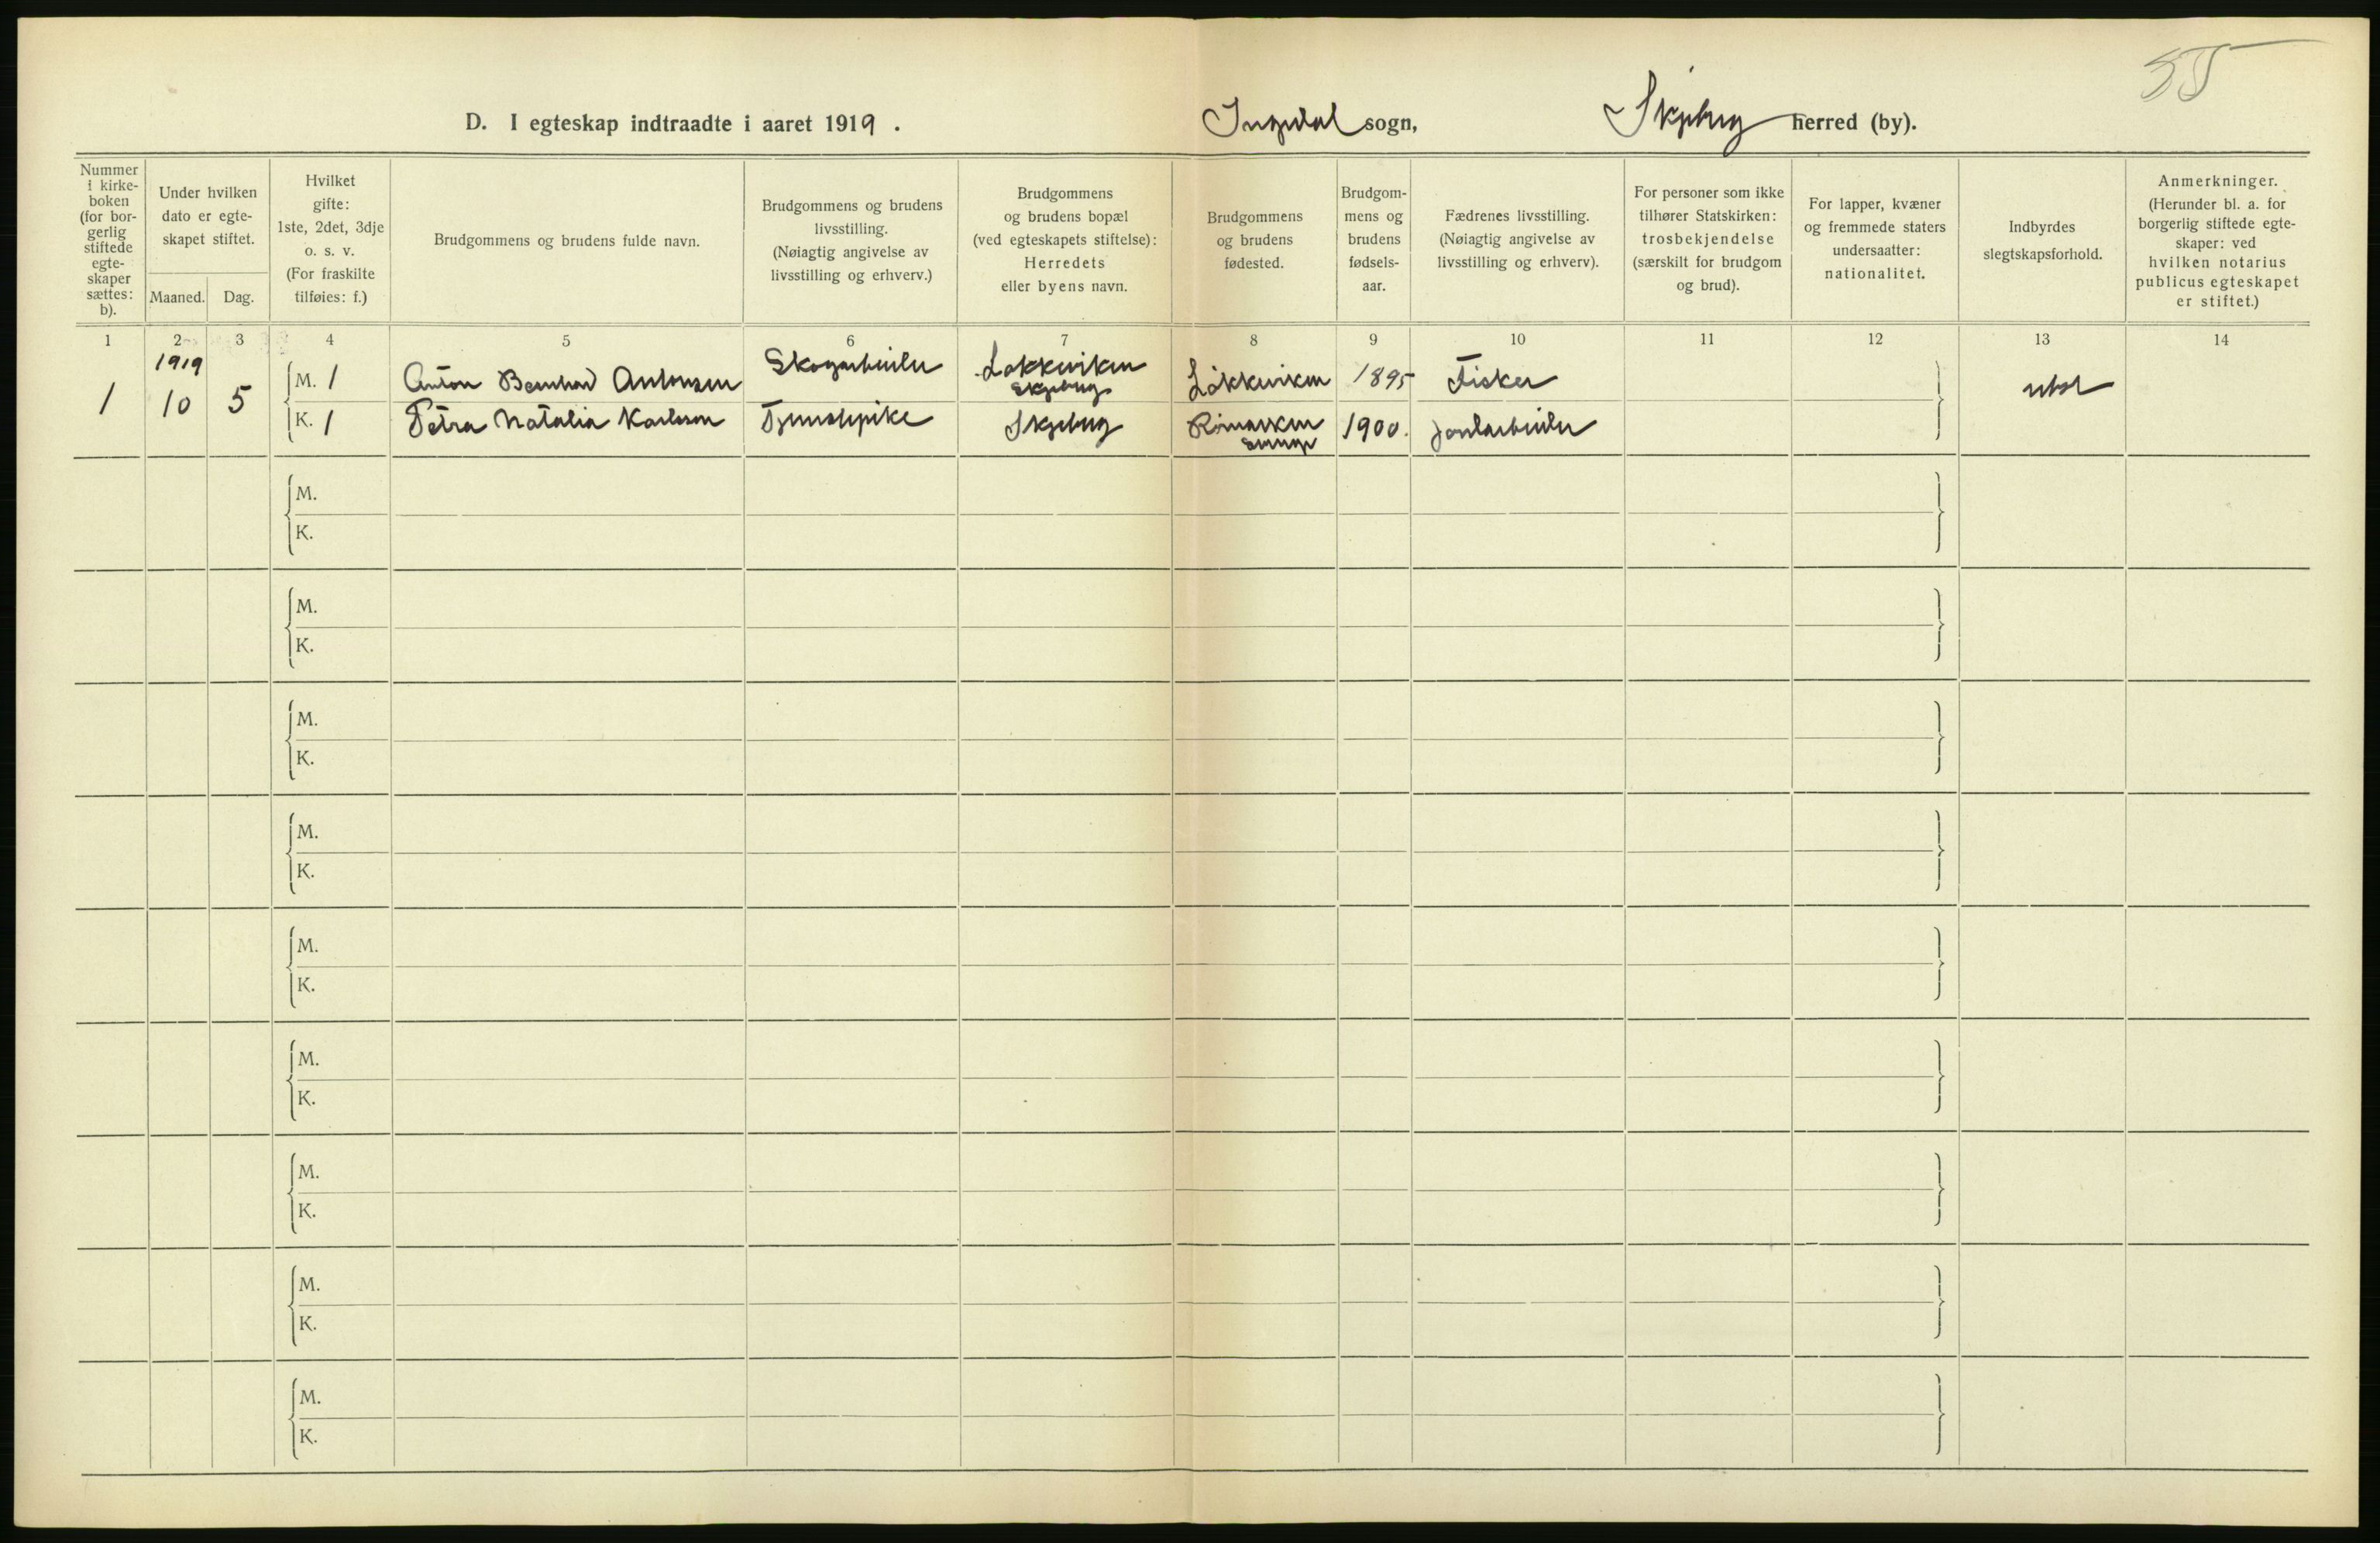 55
D. I egteskap indtraadte i aaret 1919. Ingedal sogn, Skjeberg herred (by).
Nummer
i kirke-
boken
(for bor-
gerlig
stiftede
egte-
skaper
sættes:
b).
Under hvilken
dato er egte-
skapet stiftet.
Maaned. Dag.
Hvilket
gifte:
1ste, 2det, 3dje
o. s. v.
(For fraskilte
tilføies: f.)
Brudgommens og brudens fulde navn.
Brudgommens og brudens
livsstilling.
(Nøiagtig angivelse av
livsstilling og erhverv.)
Brudgommens
og brudens bopæl
(ved egteskapets stiftelse):
Herredets
eller byens navn.
Brudgommens
og brudens
fødested.
Brudgom-
mens og
brudens
fødsels-
aar.
Fædrenes livsstilling.
(Nøiagtig angivelse av
livsstilling og erhverv).
For personer som ikke
tilhører Statskirken:
trosbekjendelse
(særskilt for brudgom
og brud).
For lapper, kvæner
og fremmede staters
undersaatter:
nationalitet.
Indbyrdes
slegtskapsforhold.
Anmerkninger.
(Herunder bl. a. for
borgerlig stiftede egte-
skaper: ved
hvilken notarius
publicus egteskapet
er stiftet.)
1 2 3 4 5 6 7 8 9 10 11 12 13 14
1919
1 10 5
M. 1 Anton Bernhard Antonsen Skogarbeider Løkkeviken Skjeberg Løkkeviken 1895 Fisker
K. 1 Petra Natalia Karlsson Tjenestepike Skjeberg 1900. Jordarbeider
M.
K.
M.
K.
M.
K.
M.
K.
M.
K.
M.
K.
M.
K.
M.
K.
M.
K.